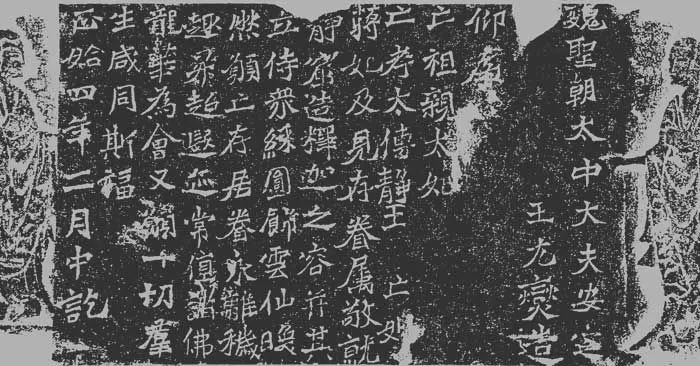 魏聖朝太中大夫安定
王元燮造
仰為
亡祖親大妃
亡考太傅靜王 亡妣
蔣妃及見存眷屬敬就
靜窟造釋迦之容并其
立侍眾綵圓飾雲仙暎
然願亡存居眷永離穢
趣昇超遐迹常值諸佛
龍華為會又願一切羣
生咸同斯福
正始四年二月中訖